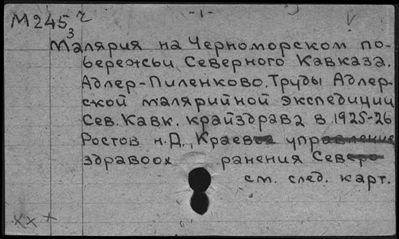 М245 2 -1-
3
Малярия на Черноморском по-
бережьи Северного Кавказа.
Адлер-Пиленково. Труды Адлер-
ской малярийной экспедиции
Сев. Кавк. крайздрава в 1925-26
Ростов н.Д., Краевое управление
здравоохранения Северо
см. след. карт.
xx x